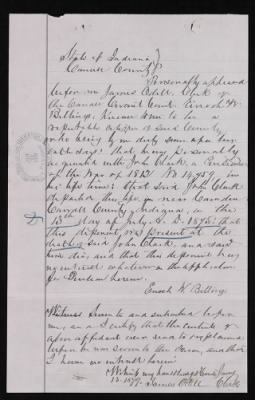 State of Indiana
Carroll County
Personally appeared
before me James Odell Clerk of
the Carroll Circuit Court Enoch W
Billings, Known to me to be a
reputable citizen of said County
who being by me duly sworn upon his
oath says that being personally
acquainted with John Clark a Pensioner
of the War of 1812 No 14,959 in
his life time that said John Clark
departed this life in near Camden
Carroll County, Indiana, on the
13th day of July A. D. 1876, that
this deponent was present at the
death of said John Clark and saw
him die, and that this deponent being
no interest whatever in the application
for Pension herein
Enoch W Billings
Witness sworn to and subscribed before
me, and I certify that the contents of
above affidavit were read to
before he was sworn to the same, and that
I have no interest herein
Witness my hand
James Odell Clerk